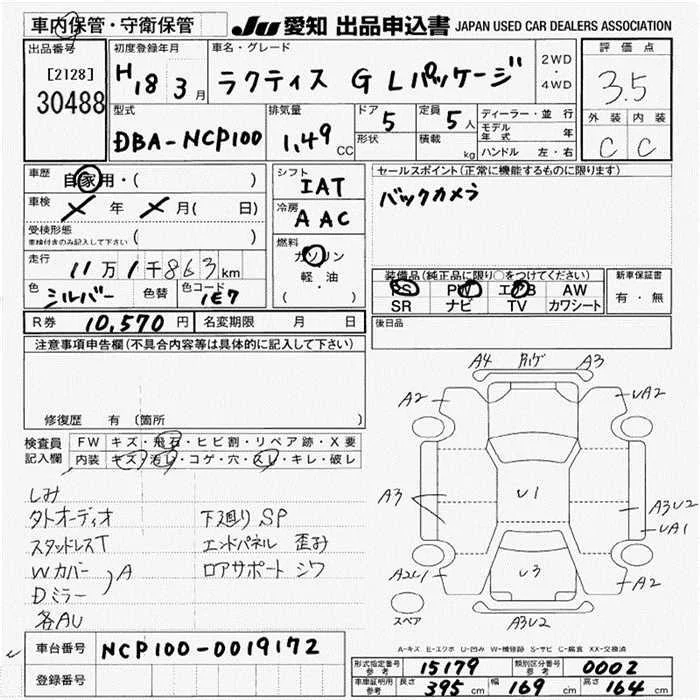 車内保管・守衛保管
JU 愛知 出品申込書 JAPAN USED CAR DEALERS ASSOCIATION
出品番号
[2128]
30488
初度登録年月
H18 3月
車名・グレード
ラクティス G Lパッケージ
2WD
・
4WD
評価点
3.5
外装 内装
C C
型式
DBA-NCP100
排気量
1,49 CC
ドア 5
形状
定員 5人
積載 kg
ディーラー・並行
モデル年式 年
ハンドル 左・右
車歴
自家用・( )
車検
メ 年 メ 月( 日)
受検形態
車検付きのみ記入して下さい ( )
走行
11万1千863km
色 シルバー 色替 色コード 1E7
シフト
IAT
冷房
AAC
燃料
ガソリン
軽・油
( )
セールスポイント(正常に機能するものに限ります)
バックカメラ
装備品(純正品に限り○をつけてください)
PS PW エアB AW
SR ナビ TV カワシート
新車保証書
有・無
R券 10,570円 名変期限 月 日
後日品
注意事項申告欄(不具合内容等は具体的に記入して下さい)
修復歴 有 〔箇所 〕
検査員
記入欄
FW キズ・飛石・ヒビ割・リペア跡・X要
内装 キズ・汚レ・コゲ・穴・スレ・キレ・破レ
しみ
タトオーディオ 下廻りSP
スタッドレスT エンドパネル 歪み
Wカバー A ロアサポート シワ
Dミラー
各AU
A4 A3
A2 UA2
U1
A3 A3U2
UA1
A2U1 U3 A2
スペア
A3U2
A-キズ E-エクボ U-凹み W-補修跡 S-サビ C-腐食 XX-交換済
車台番号 NCP100-0019172
登録番号
形式指定番号 参考 15179 類別区分番号 参考 0002
車庫証明用 参考 長さ 395cm 幅 169cm 高さ 164cm